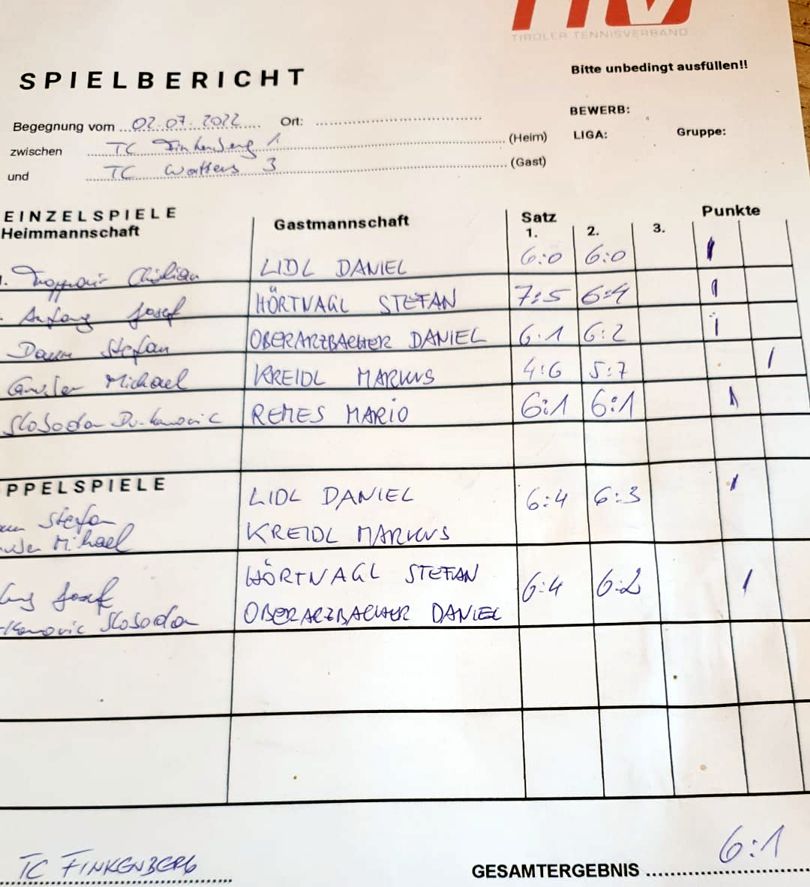 TTV
TIROLER TENNISVERBAND
SPIELBERICHT
Bitte unbedingt ausfüllen!!
Begegnung vom 02.07.2022 Ort:
BEWERB:
zwischen TC Finkenberg 1 (Heim) LIGA: Gruppe:
und TC Wattens 3 (Gast)
EINZELSPIELE
Heimmannschaft Gastmannschaft Satz Punkte
1. 2. 3.
Christian LIDL DANIEL 6:0 6:0 1
Josef HÖRTNAGL STEFAN 7:5 6:4 1
Stefan OBERARZBACHER DANIEL 6:1 6:2 1
Michael KREIDL MARKUS 4:6 5:7 1
Slobodan REMES MARIO 6:1 6:1 1
PPELSPIELE
Stefan LIDL DANIEL 6:4 6:3 1
Michael KREIDL MARKUS
Josef HÖRTNAGL STEFAN 6:4 6:2 1
Slobodan OBERARZBACHER DANIEL
TC FINKENBERG
GESAMTERGEBNIS 6:1